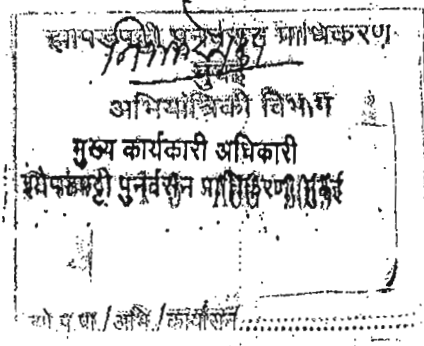 झोपडपट्टी पुनर्वसन प्राधिकरण
मुंबई
अभियांत्रिकी विभाग
मुख्य कार्यकारी अधिकारी
झोपडपट्टी पुनर्वसन प्राधिकरण मुंबई
झो पु प्रा / अभि / कार्यासन